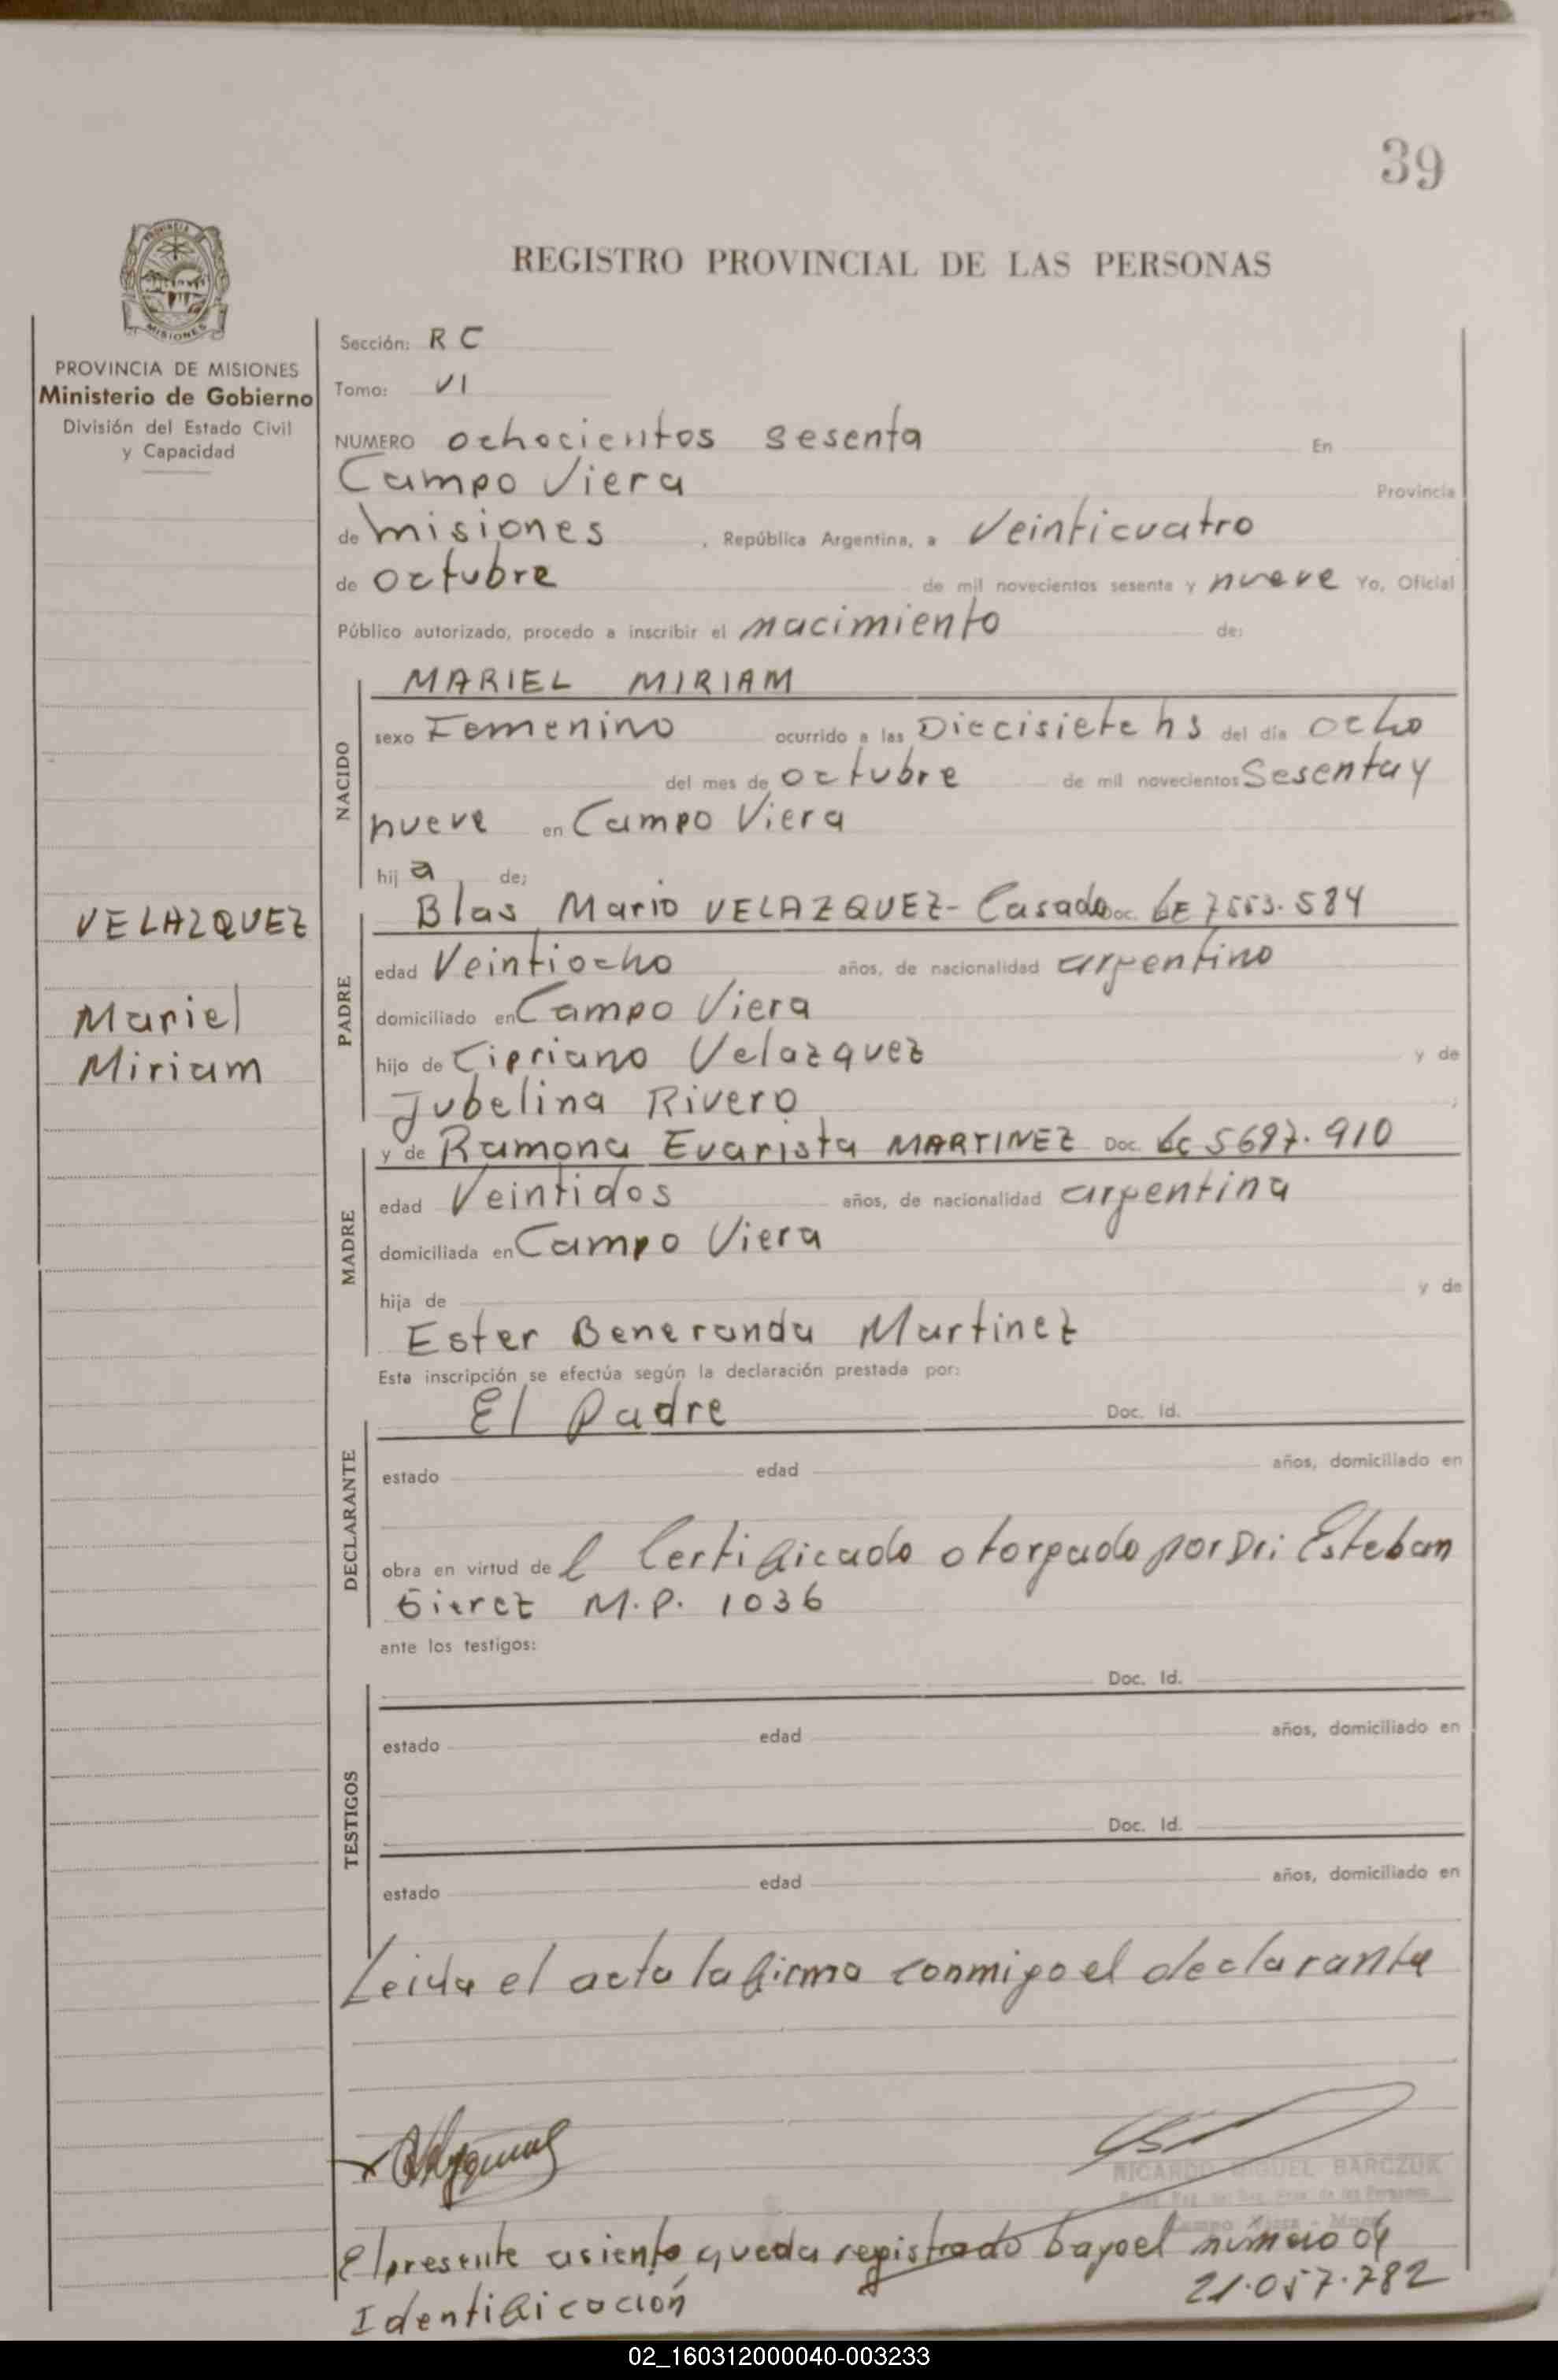 39
REGISTRO PROVINCIAL DE LAS PERSONAS
PROVINCIA DE MISIONES
Ministerio de Gobierno
División del Estado Civil
y Capacidad
Sección: R C
Tomo: VI
NUMERO ochocientos sesenta En
Campo Viera Provincia
de misiones, República Argentina, a Veinticuatro
de octubre de mil novecientos sesenta y nueve Yo, Oficial
Público autorizado, procedo a inscribir el nacimiento de:
NACIDO
MARIEL MIRIAM
sexo Femenino ocurrido a las Diecisiete hs del día ocho
del mes de octubre de mil novecientos Sesenta y
nueve en Campo Viera
hij a de:
VELAZQUEZ
Mariel
Miriam
PADRE
Blas Mario VELAZQUEZ - Casado Doc. LE 7553.584
edad Veintiocho años, de nacionalidad argentino
domiciliado en Campo Viera
hijo de Cipriano Velazquez y de
Jubelina Rivero
MADRE
y de Ramona Evarista MARTINEZ Doc. LC 5697.910
edad Veintidos años, de nacionalidad argentina
domiciliada en Campo Viera
hija de y de
Ester Beneranda Martinez
Esta inscripción se efectúa según la declaración prestada por:
DECLARANTE
El Padre Doc. Id.
estado edad años, domiciliado en
obra en virtud de l Certificado otorgado por Dr: Esteban
M.P. 1036
ante los testigos:
TESTIGOS
Doc. Id.
estado edad años, domiciliado en
Doc. Id.
estado edad años, domiciliado en
Leida el acta la firma conmigo el declarante
RICARDO MIGUEL BARCZUK
El presente asiento queda registrado bajo el numero de
21.057.782
Identificación
02_160312000040-003233